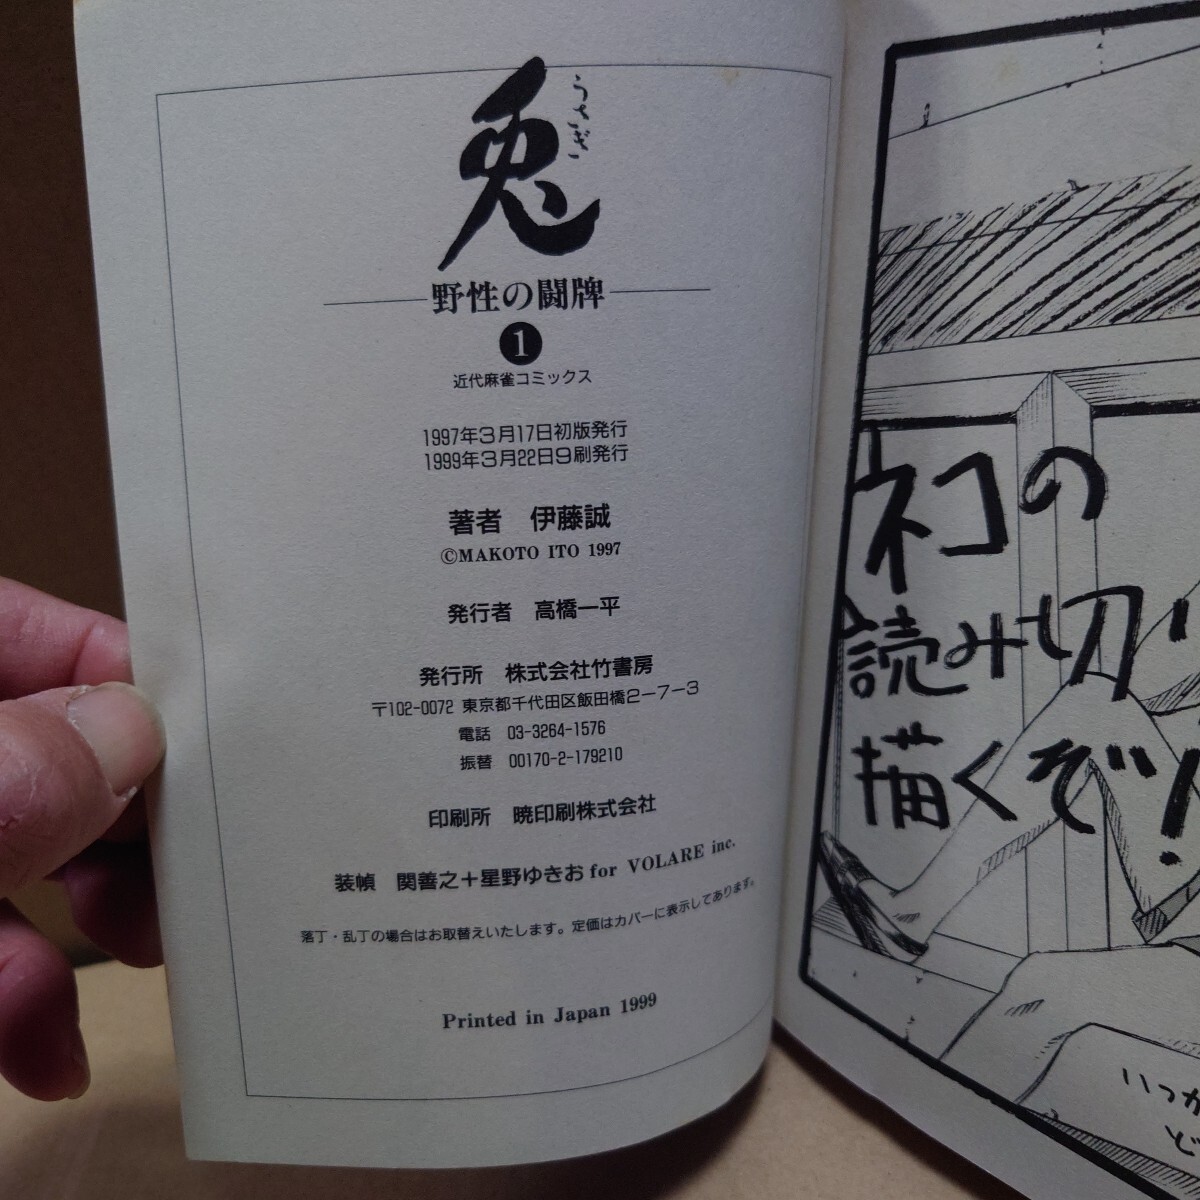 兎
うさぎ
野性の闘牌
1
近代麻雀コミックス
1997年3月17日初版発行
1999年3月22日9刷発行
著者 伊藤誠
©MAKOTO ITO 1997
発行者 高橋一平
発行所 株式会社竹書房
〒102-0072 東京都千代田区飯田橋2-7-3
電話 03-3264-1576
振替 00170-2-179210
印刷所 暁印刷株式会社
装幀 関善之+星野ゆきお for VOLARE inc.
落丁・乱丁の場合はお取替えいたします。定価はカバーに表示してあります。
Printed in Japan 1999
ネコの
読み切り
描くぞ!
いつか
ど